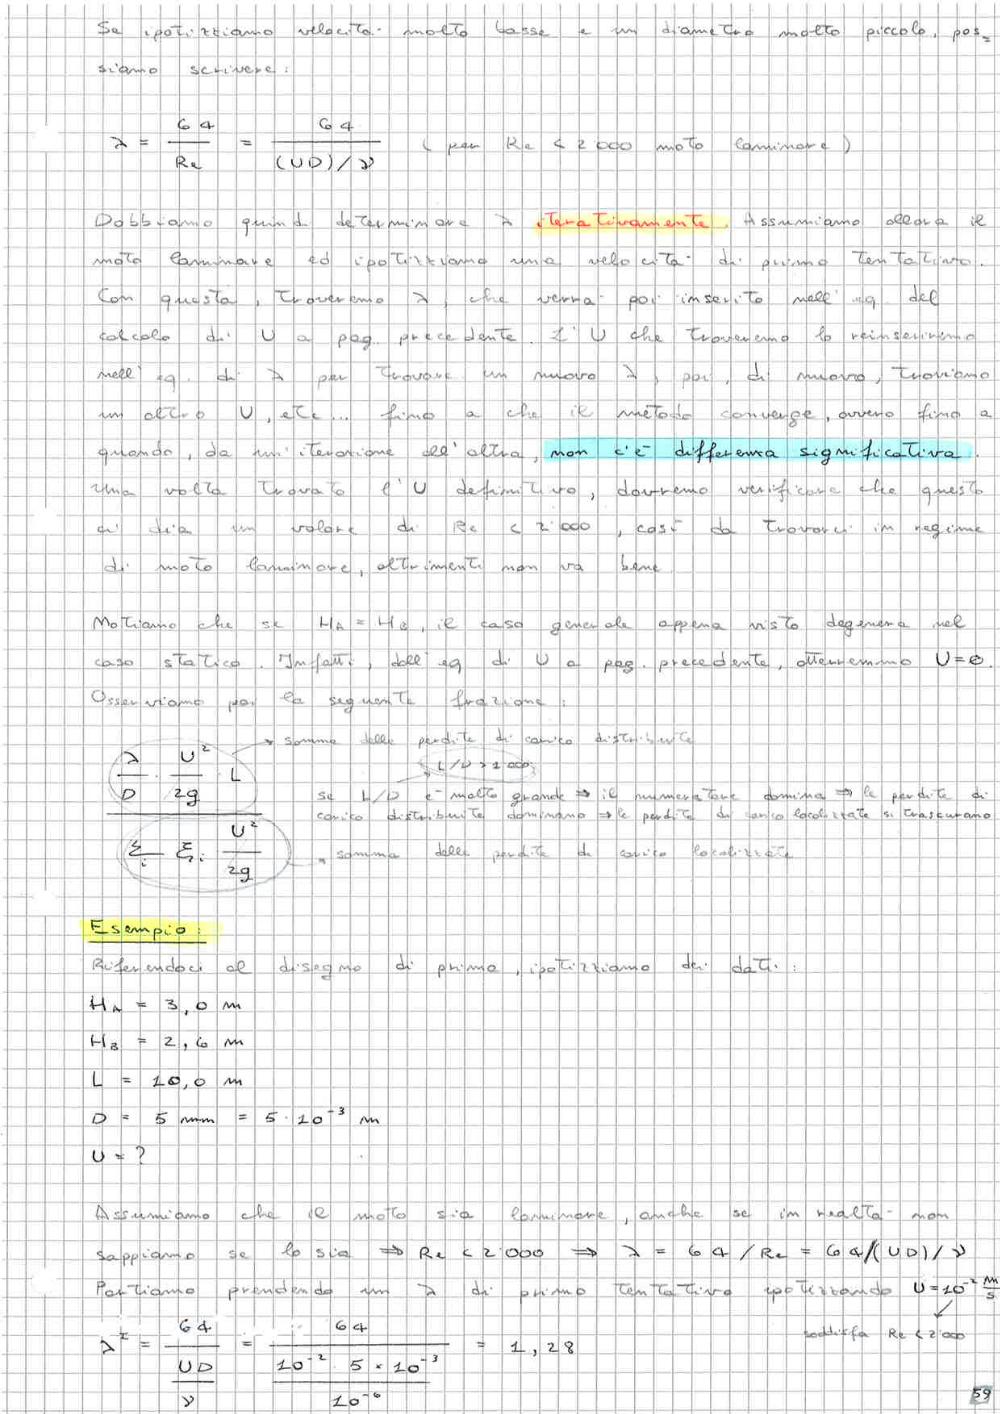 Se ipotizziamo velocità molto basse e un diametro molto piccolo, pos=
siamo scrivere:
λ = 64/Re = 64/((UD)/ν) (per Re < 2000 moto laminare)
Dobbiamo quindi determinare λ iterativamente. Assumiamo allora il
moto laminare ed ipotizziamo una velocità di primo tentativo.
Con questa, troveremo λ, che verrà poi inserito nell'eq. del
calcolo di U a pag. precedente. L'U che troveremo lo reinseriremo
nell'eq. di λ per trovare un nuovo λ, poi, di nuovo, troviamo
un altro U, etc... fino a che il metodo converge, ovvero fino a
quando, da un'iterazione all'altra, non c'è differenza significativa.
Una volta trovato l'U definitivo, dovremo verificare che questo
ci dia un valore di Re < 2000, così da trovarci in regime
di moto laminare, altrimenti non va bene
Notiamo che se HA = HB, il caso generale appena visto degenera nel
caso statico. Infatti, dall'eq di U a pag. precedente, otterremmo U=0.
Osserviamo poi la seguente frazione:
λ/D · U²/2g · L → somma delle perdite di carico distribuite
L/D > 1000
se L/D è molto grande ⇒ il numeratore domina ⇒ le perdite di
carico distribuite dominano ⇒ le perdite di carico localizzate si trascurano
Σi ξi U²/2g → somma delle perdite di carico localizzate
Esempio:
Riferendoci al disegno di prima, ipotizziamo dei dati:
HA = 3,0 m
HB = 2,6 m
L = 10,0 m
D = 5 mm = 5·10⁻³ m
U = ?
Assumiamo che il moto sia laminare, anche se in realtà non
sappiamo se lo sia ⇒ Re < 2000 ⇒ λ = 64/Re = 64/(UD)/ν
Partiamo prendendo un λ di primo tentativo ipotizzando U=10⁻² m/s
soddisfa Re < 2000
λᴵ = 64/(UD/ν) = 64/((10⁻² · 5 × 10⁻³)/10⁻⁶) = 1,28
59